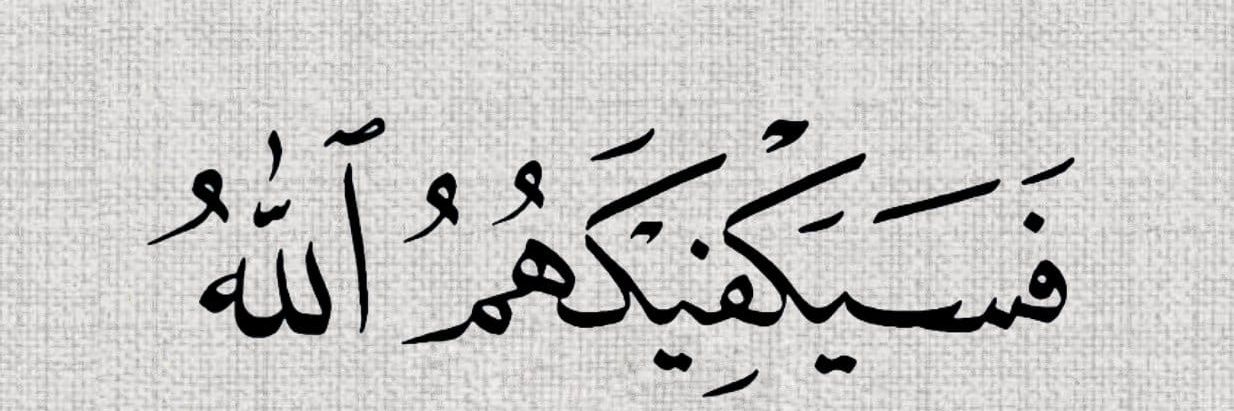 فَسَيَكْفِيْكَهُمُ ٱللّٰهُ